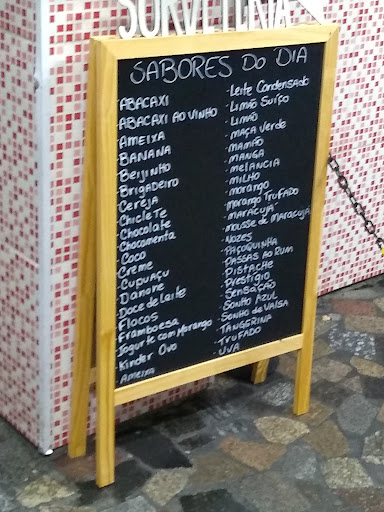 SORVETERIA
SABORES DO DIA
-ABACAXI
-ABACAXI AO VINHO
-AMEIXA
-BANANA
-Beijinho
-BRIGADEIRO
-CEREJA
-CHICLETE
-Chocolate
-Chocomenta
-Coco
-CREME
-CUPUAÇU
-DANONE
-Doce de Leite
-FLOCOS
-Framboesa
-Iogurte com Morango
-Kinder Ovo
-AMEIXA
-Leite Condensado
-Limão Suíço
-Limão
-MAÇA Verde
-MAMÃO
-MANGA
-MELANCIA
-MILHO
-morango
-Morango TruFADO
-MARACUJA
-mousse de Maracuja
-NOZES
-PAÇOQUINHA
-PASSAS AO RUM
-PISTACHE
-Prestígio
-SENSAÇÃO
-SONHO AZUL
-SONHO de VALSA
-TANGERINA
-TRUFADO
-UVA